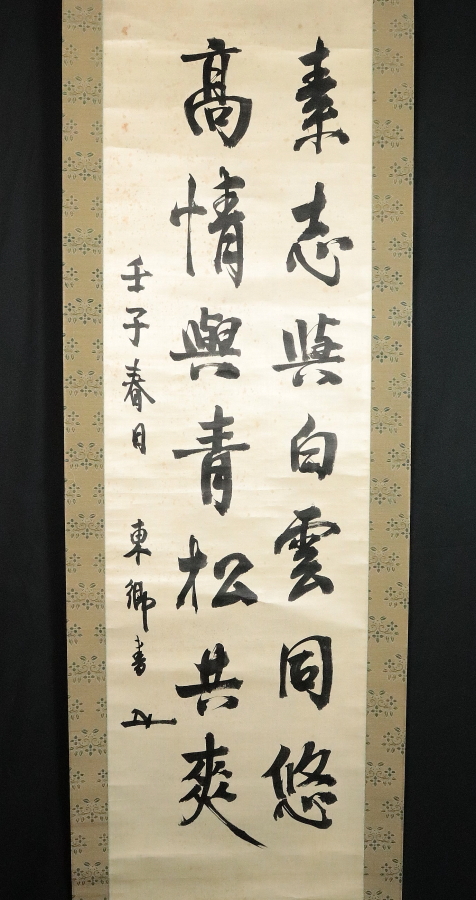 素志與白雲同悠
高情與青松共爽
壬子春日 東郷書